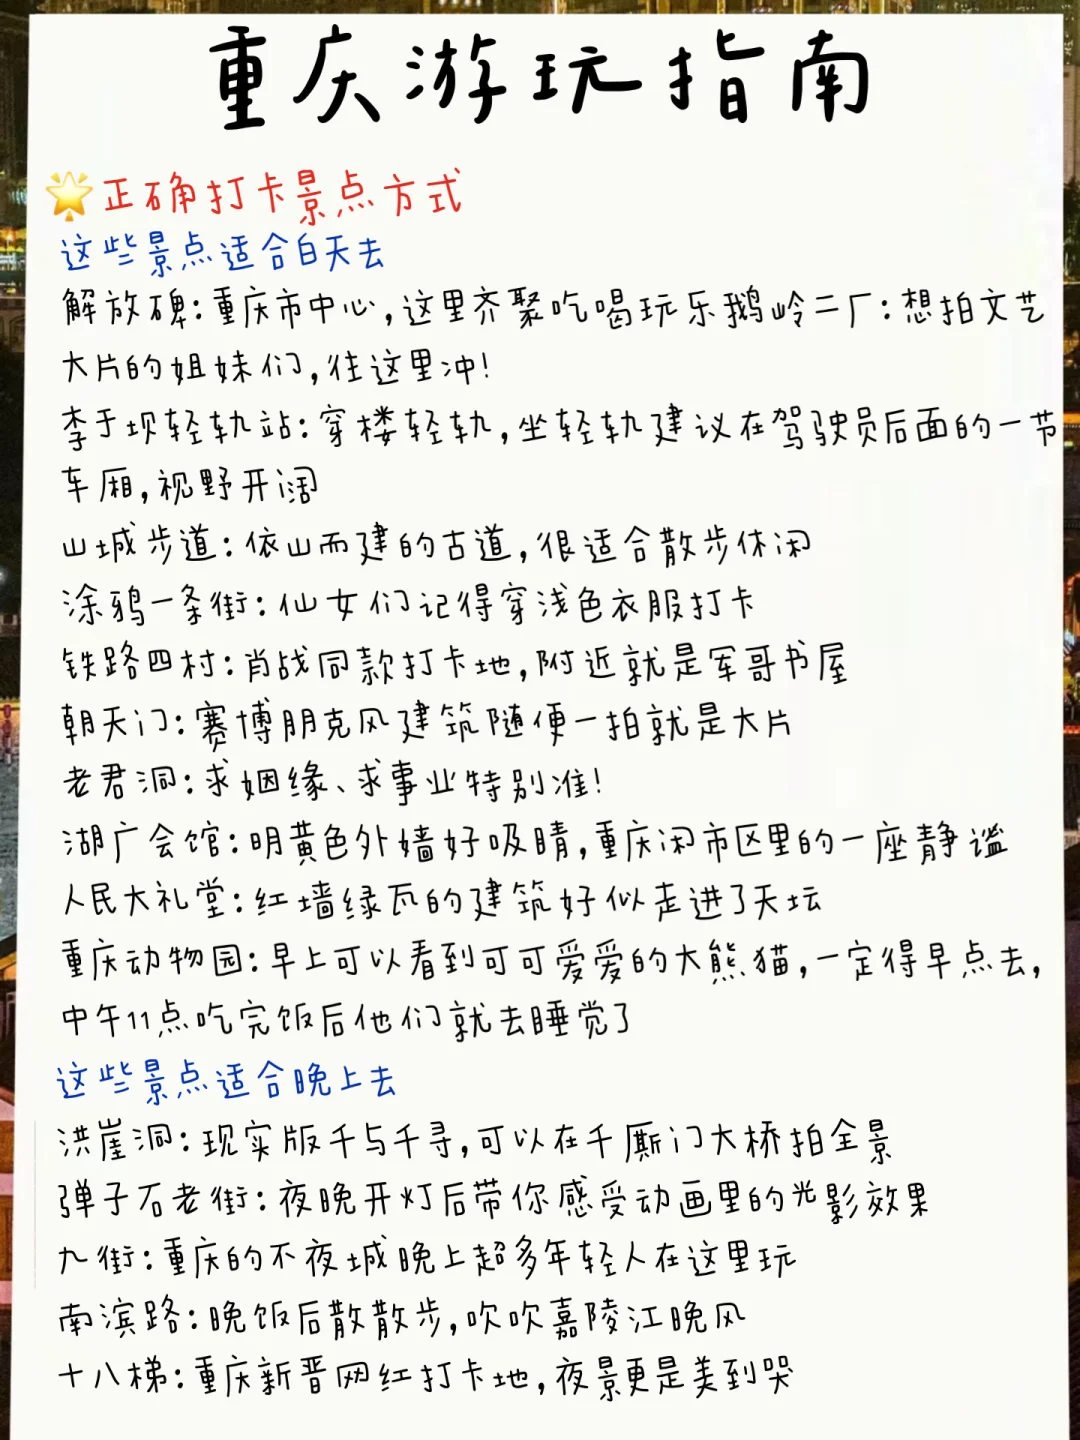 重庆游玩指南
正确打卡景点方式
这些景点适合白天去
解放碑:重庆市中心,这里齐聚吃喝玩乐鹅岭二厂:想拍文艺
大片的姐妹们,往这里冲!
李子坝轻轨站:穿楼轻轨,坐轻轨建议在驾驶员后面的一节
车厢,视野开阔
山城步道:依山而建的古道,很适合散步休闲
涂鸦一条街:仙女们记得穿浅色衣服打卡
铁路四村:肖战同款打卡地,附近就是军哥书屋
朝天门:赛博朋克风建筑随便一拍就是大片
老君洞:求姻缘、求事业特别准!
湖广会馆:明黄色外墙好吸睛,重庆闲市区里的一座静谧
人民大礼堂:红墙绿瓦的建筑好似走进了天坛
重庆动物园:早上可以看到可可爱爱的大熊猫,一定得早点去,
中午11点吃完饭后他们就去睡觉了
这些景点适合晚上去
洪崖洞:现实版千与千寻,可以在千厮门大桥拍全景
弹子石老街:夜晚开灯后带你感受动画里的光影效果
九街:重庆的不夜城晚上超多年轻人在这里玩
南滨路:晚饭后散散步,吹吹嘉陵江晚风
十八梯:重庆新晋网红打卡地,夜景更是美到哭